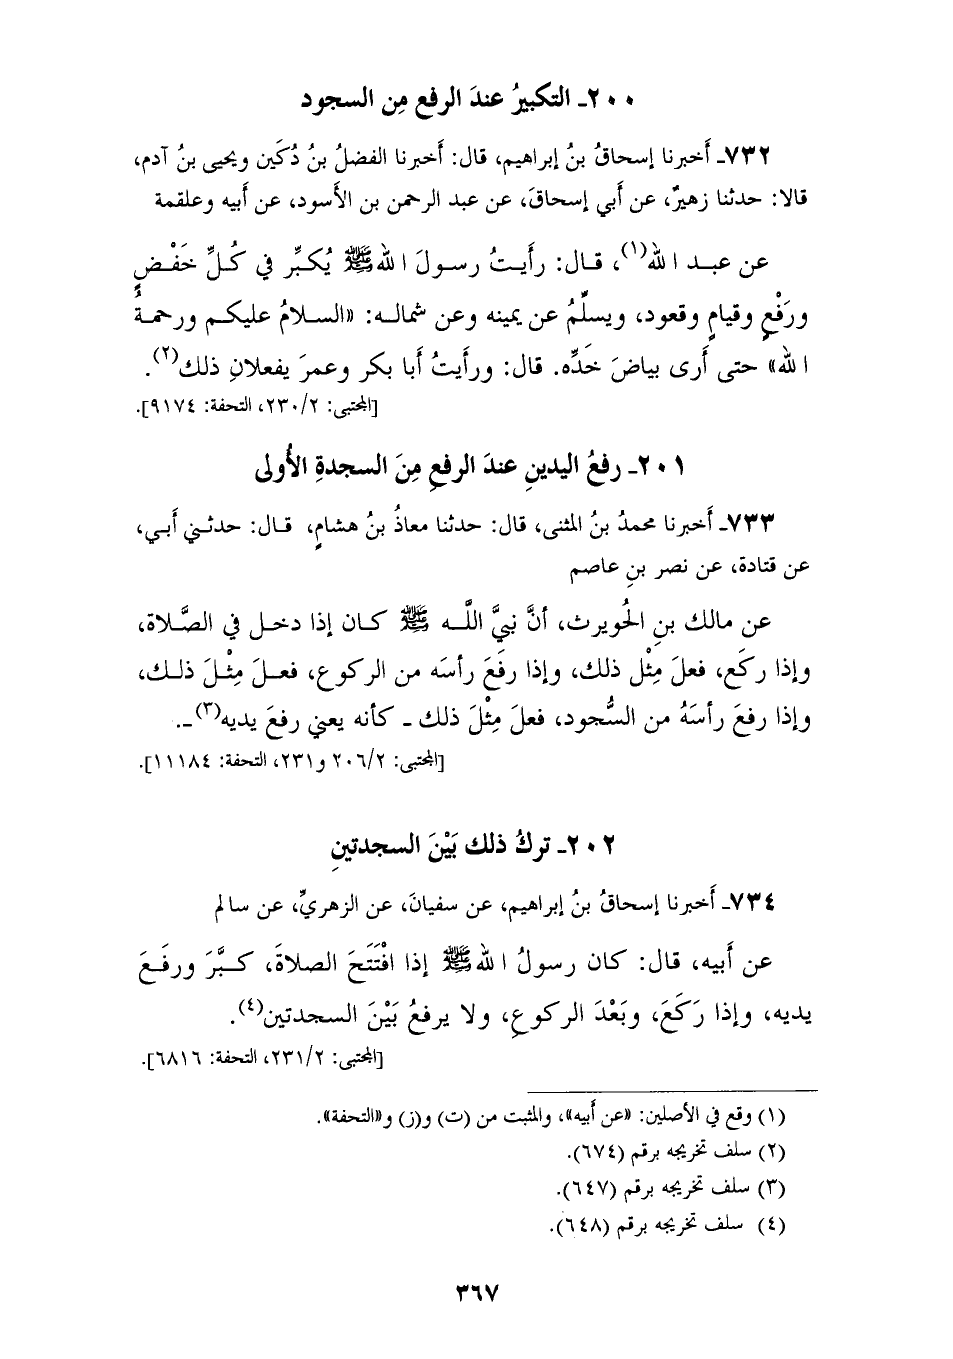 ٢٠٠ـ التكبيرُ عندَ الرفع مِن السجود
٧٣٢ـ أخبرنا إسحاقُ بنُ إبراهيم، قال: أخبرنا الفضلُ بنُ دُكَين ويحيى بنُ آدم،
قالا: حدثنا زهيرٌ، عن أبي إسحاقَ، عن عبد الرحمن بن الأسود، عن أبيه وعلقمة
عن عبد الله(١)، قال: رأيتُ رسولَ الله ﷺ يُكبِّر في كُلِّ خَفْضٍ
ورَفْعٍ وقيامٍ وقعود، ويسلِّمُ عن يمينه وعن شماله: «السلامُ عليكم ورحمةُ
الله» حتى أرى بياضَ خَدِّه. قال: ورأيتُ أبا بكر وعمرَ يفعلانِ ذلك(٢).
[المجتبى: ٢/٢٣٠، التحفة: ٩١٧٤].
٢٠١ـ رفعُ اليدينِ عندَ الرفعِ مِنَ السجدةِ الأُولى
٧٣٣ـ أخبرنا محمدُ بنُ المثنى، قال: حدثنا معاذُ بنُ هشامٍ، قال: حدثني أبي،
عن قتادة، عن نصر بنِ عاصم
عن مالك بنِ الحُويرث، أنَّ نبيَّ اللَّه ﷺ كان إذا دخل في الصَّلاة،
وإذا ركَع، فعلَ مِثْل ذلك، وإذا رفَعَ رأسَه من الركوع، فعلَ مِثْلَ ذلك،
وإذا رفعَ رأسَهُ من السُّجود، فعلَ مِثْلَ ذلك ـ كأنه يعني رفعَ يديه(٣)ـ.
[المجتبى: ٢/٢٠٦ و٢٣١، التحفة: ١١١٨٤].
٢٠٢ـ تركُ ذلك بَيْنَ السجدتينِ
٧٣٤ـ أخبرنا إسحاقُ بنُ إبراهيم، عن سفيانَ، عن الزهريِّ، عن سالم
عن أبيه، قال: كان رسولُ الله ﷺ إذا افْتَتَحَ الصلاةَ، كبَّرَ ورفَعَ
يديه، وإذا رَكَعَ، وبَعْدَ الركوعِ، ولا يرفعُ بَيْنَ السجدتين(٤).
[المجتبى: ٢/٢٣١، التحفة: ٦٨١٦].
(١) وقع في الأصلين: «عن أبيه»، والمثبت من (ت) و(ز) و«التحفة».
(٢) سلف تخريجه برقم (٦٧٤).
(٣) سلف تخريجه برقم (٦٤٧).
(٤) سلف تخريجه برقم (٦٤٨).
٣٦٧